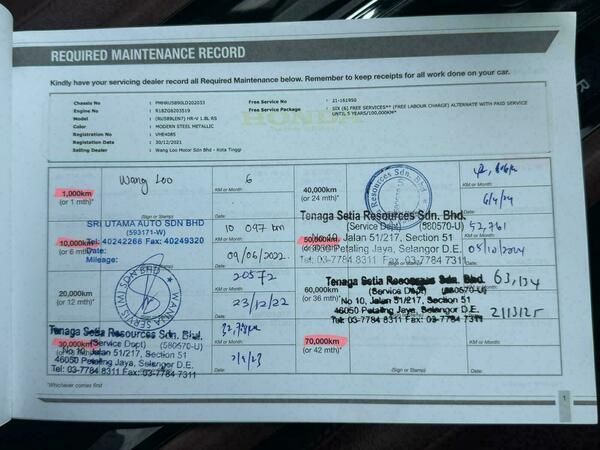 REQUIRED MAINTENANCE RECORD
Kindly have your servicing dealer record all Required Maintenance below. Remember to keep receipts for all work done on your car.
Chassis No : PMHRU5890LD202033 Free Service No : 21-161950
Engine No : R18ZG6203519 Free Service Package : SIX (6) FREE SERVICES** (FREE LABOUR CHARGE) ALTERNATE WITH PAID SERVICE
UNTIL 5 YEARS/100,000KM**
Model : (RU589LEN7) HR-V 1.8L RS
Color : MODERN STEEL METALLIC
Registration No : VHE4085
Registration Date : 30/12/2021
Selling Dealer : Wang Loo Motor Sdn Bhd - Kota Tinggi
HONDA
1,000km
(or 1 mth)*
Wang Loo
(Sign or Stamp)
6
KM or Month:
Date:
10,000km
(or 6
SRI UTAMA AUTO SDN BHD
(593171-W)
Tel: 40242266 Fax: 40249320
Date:
Mileage:
10 097 km
KM or Month:
09/06/2022
Date:
20,000km
(or 12 mth)*
WANGSA SERVIS (M) SDN BHD
20572
KM or Month:
23/12/22
Date:
30,000km
Tenaga Setia Resources Sdn. Bhd.
(Service Dept) (580570-U)
No 10, Jalan 51/217, Section 51
46050 Petaling Jaya, Selangor D.E.
Tel: 03-7784 8311 Fax: 03-7784 7311
KM or Month:
Date:
*Whichever comes first
40,000km
(or 24 mth)*
Resources Sdn. Bhd.
KM or Month:
6/4/24
Date:
50,000km
Tenaga Setia Resources Sdn. Bhd.
(Service Dept) (580570-U)
Jalan 51/217, Section 51
Petaling Jaya, Selangor D.E.
Tel: 03-7784 8311 Fax: 03-7784 7311
52,761
KM or Month:
05/10/2024
Date:
60,000km
(or 36 mth)*
Tenaga Setia Resources Sdn. Bhd.
(Service Dept) (580570-U)
No 10, Jalan 51/217, Section 51
46050 Petaling Jaya, Selangor D.E.
Tel: 03-7784 8311 Fax: 03-7784 7311
63,134
KM or Month:
Date:
70,000km
(or 42 mth)*
(Sign or Stamp)
KM or Month:
Date:
1